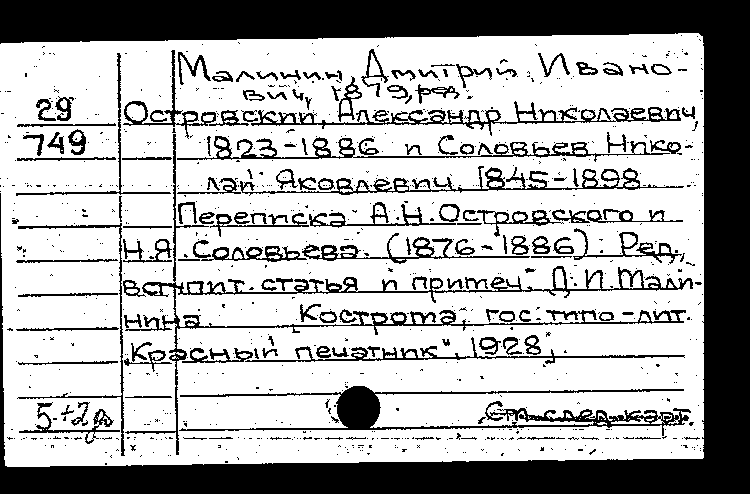 Малинин, Дмитрий Ивано-
вич, 1879, ред.
29 Островский, Александр Николаевич,
749 1823-1886 и Соловьев, Нико-
лай Яковлевич, 1845-1898
Переписка А.Н. Островского и
Н.Я. Соловьева. (1876-1886). Ред.,
вступит. статья и примеч. Д.И. Мали-
нина. Кострома, гос. типо-лит.
"Красный печатник", 1928.
См. след. карт.